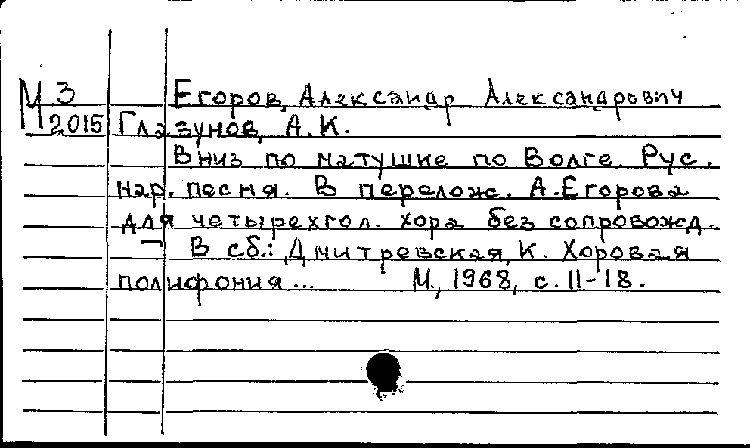 М 3 Егоров, Александр Александрович
2015 Глазунов, А.К.
Вниз по матушке по Волге. Рус.
нар. песня. В перелож. А.Егорова
для четырехгол. хора без сопровожд.
В сб.: Дмитревская, К. Хоровая
полифония... М, 1968, с. 11-18.